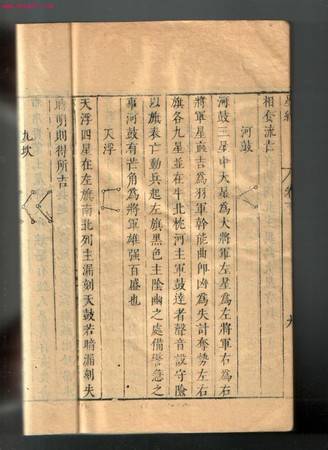 相去流占
河鼓
河鼓三星中大星為大將軍左星為左將軍右為右
將軍星直吉為羽軍幹能曲即凶為失計奪勢左右
旗各九星並在牛北枕河主軍鼓達者聲音設守險
以旗表亡動兵起左旗黑色主陰幽之處備警急之
事河鼓有芒角為將軍雄强百盛也
天浮
天浮四星在左旗南北列主漏刻天鼓若暗漏刻失
時明則得所吉
九坎